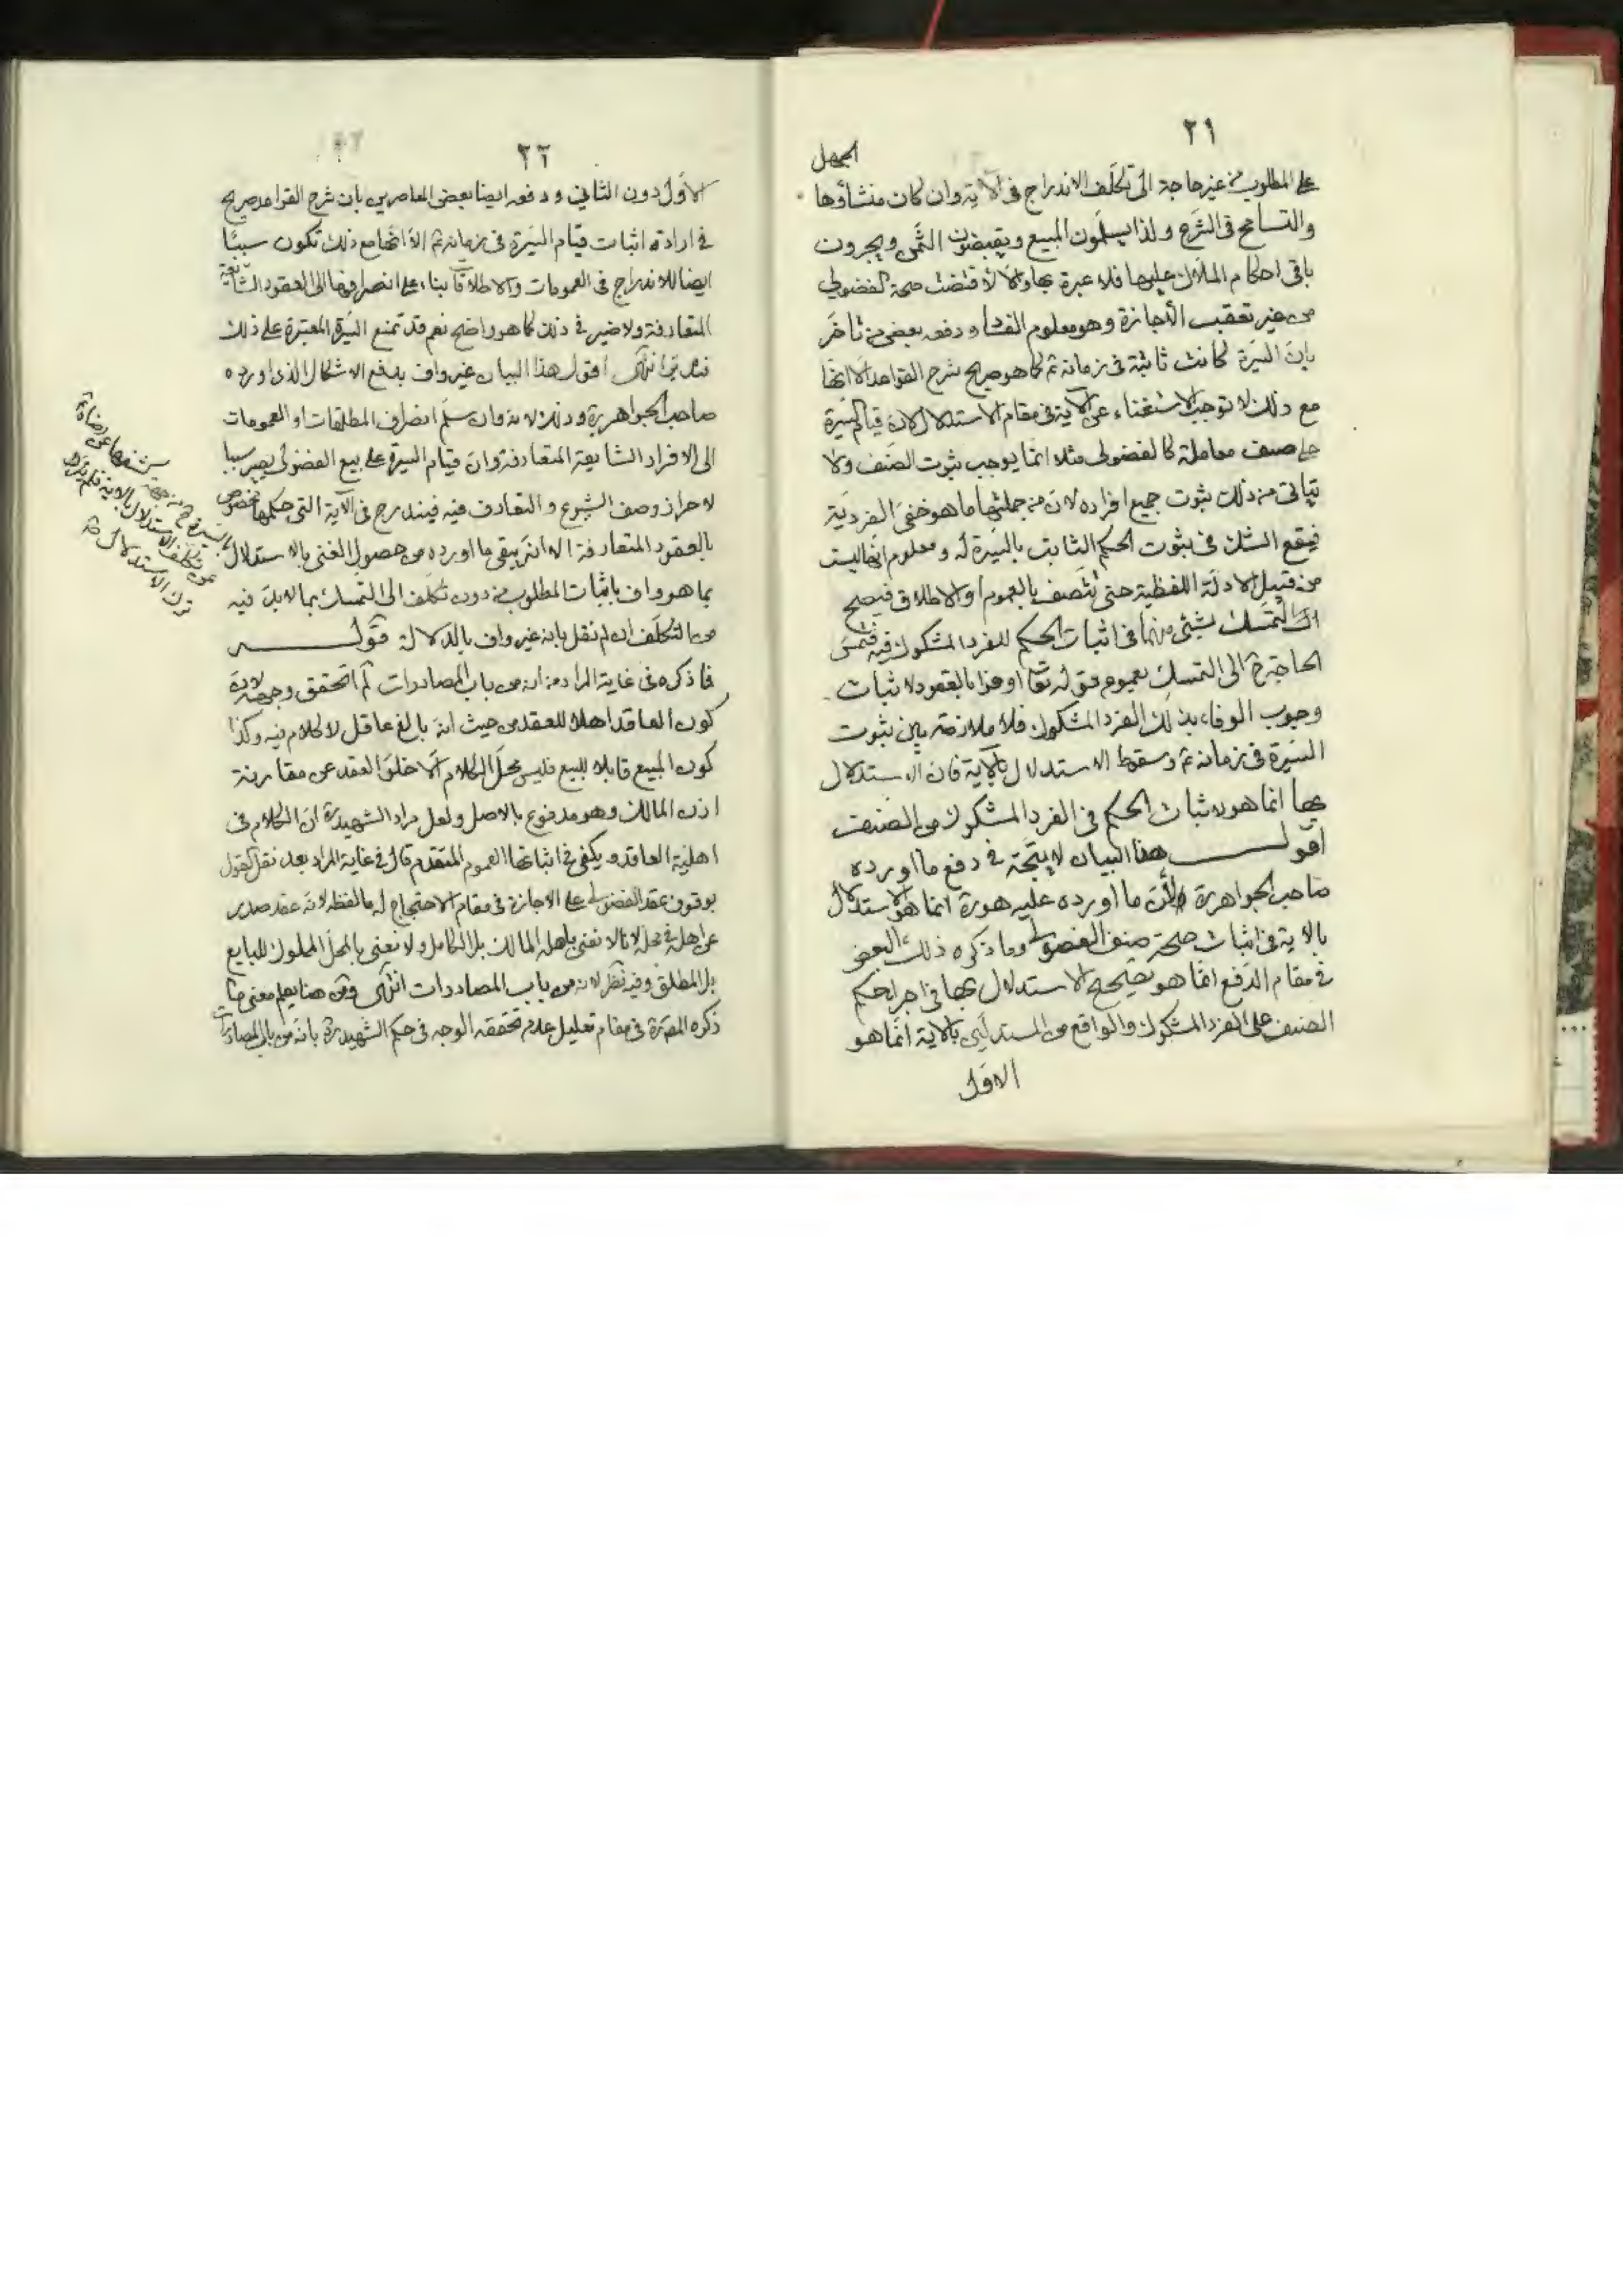 ٢١
على المطلوب من غير حاجة الى تكلف الاندراج فى الآية وان كان منشأوها الجهل
والتسامح فى الشرع ولذا يسلمون المبيع ويقبضون الثمن ويجرون
باقى احكام الملاك عليها فلا عبرة بها والا لاقتضت صحة الفضولى
من غير تعقب الأجازة وهو معلوم الفساد ودفعه بعض من تأخر
بان السيرة كانت ثابتة فى زمانه ثم كما هو صريح شرح القواعد الا انها
مع ذلك لا توجب الاستغناء عن الآية فى مقام الاستدلال لان قيام السيرة
على صنف معاملة كالفضولى مثلا انما يوجب ثبوت الصنف ولا
يتاتى من ذلك ثبوت جميع افراده لان من جملتها ما هو خفى الفردية
فيقع الشك فى ثبوت الحكم الثابت بالسيرة له ومعلوم انها ليست
من قبيل الادلة اللفظية حتى تتصف بالعموم او الاطلاق فيصح
التمسك بشئ منهما فى اثبات الحكم للفرد المشكوك فيه فتمس
الحاجة ح الى التمسك بعموم قوله تعا اوفوا بالعقود لاثبات
وجوب الوفاء بذلك الفرد المشكوك فلا ملازمة بين ثبوت
السيرة فى زمانه ثم وسقوط الاستدلال بالآية فان الاستدلال
بها انما هو لاثبات الحكم فى الفرد المشكوك من الصنف
اقول هذا البيان لا يتجه فى دفع ما اورده
صاحب الجواهر ره لأن ما اورده عليه هو ره انما هو الاستدلال
بالاية فى اثبات صحة صنف الفضولى وما ذكره ذلك البعض
فى مقام الدفع انما هو تصحيح الاستدلال بها فى اجراء حكم
الصنف على الفرد المشكوك والواقع من المستدلين بالآية انما هو
الاول
٢٢
الأول دون الثانى ودفعه ايضا بعض المعاصرين بان شرح القواعد صريح
فى ارادته اثبات قيام السيرة فى زمانه ثم الا انها مع ذلك تكون سببا
ايضا للاندراج فى العمومات والاطلاقات بناء على انصرافها الى العقود الشايعة
المتعارفة ولا ضير فى ذلك كما هو واضح نعم قد تمنع السيرة المعتبرة على ذلك
فتدبر انتهى اقول هذا البيان غير واف بدفع الاشكال الذى اورده
صاحب الجواهر ره وذلك لانه وان سلم انصراف المطلقات او العمومات
الى الافراد الشايعة المتعارفة وان قيام السيرة على بيع الفضولى يصير سببا
لاحراز وصف الشيوع والتعارف فيه فيندرج فى الآية التى حكمها مخصوص
بالعقود المتعارفة الا انه يبقى ما اورده من حصول الغنى بالاستدلال
بما هو واف باثبات المطلوب من دون تكلف الى التمسك بما لا بد فيه
من التكلف ان لم نقل بانه غير واف بالدلالة قوله
فما ذكره فى غاية المراد من انه من باب المصادرات لم اتحقق وجهه لان
كون العاقد اهلا للعقد من حيث انه بالغ عاقل لا كلام فيه وكذا
كون المبيع قابلا للبيع فليس محل الكلام الا خلو العقد عن مقارنة
اذن المالك وهو مدفوع بالاصل ولعل مراد الشهيد ره ان الكلام فى
اهلية العاقد ويكفى فى اثباتها العموم المتقدم قال فى غاية المراد بعد نقل القول
بوقوف عقد الفضولى على الاجازة فى مقام الاحتجاج له ما لفظه لانه عقد صدر
عن اهله فى محله لانا لا نعنى باهله المالك بل الكامل ولا نعنى بالمحل المملوك للبايع
بل المطلق وفيه نظر لانه من باب المصادرات انتهى ومن هنا يعلم معنى ما
ذكره المص ره فى مقام تعليل عدم تحققه الوجه فى حكم الشهيد ره بانه من باب المصادرات